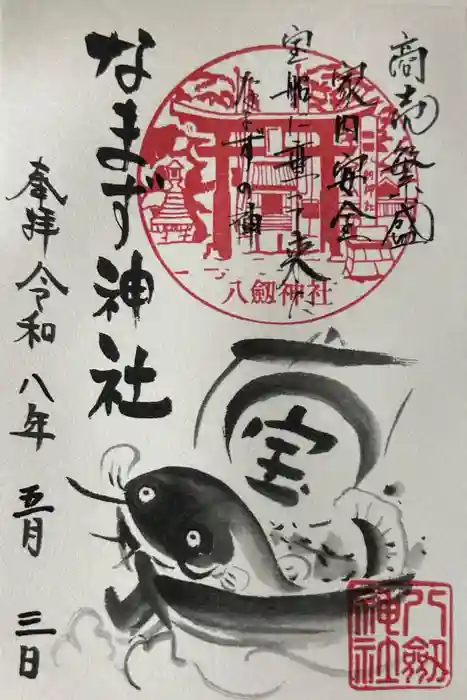 商売繁盛
家内安全
宝船に乗って来た
なまずの神
八劔神社
なまず神社
奉拝 令和八年 五月 三日
宝
八劔
神社